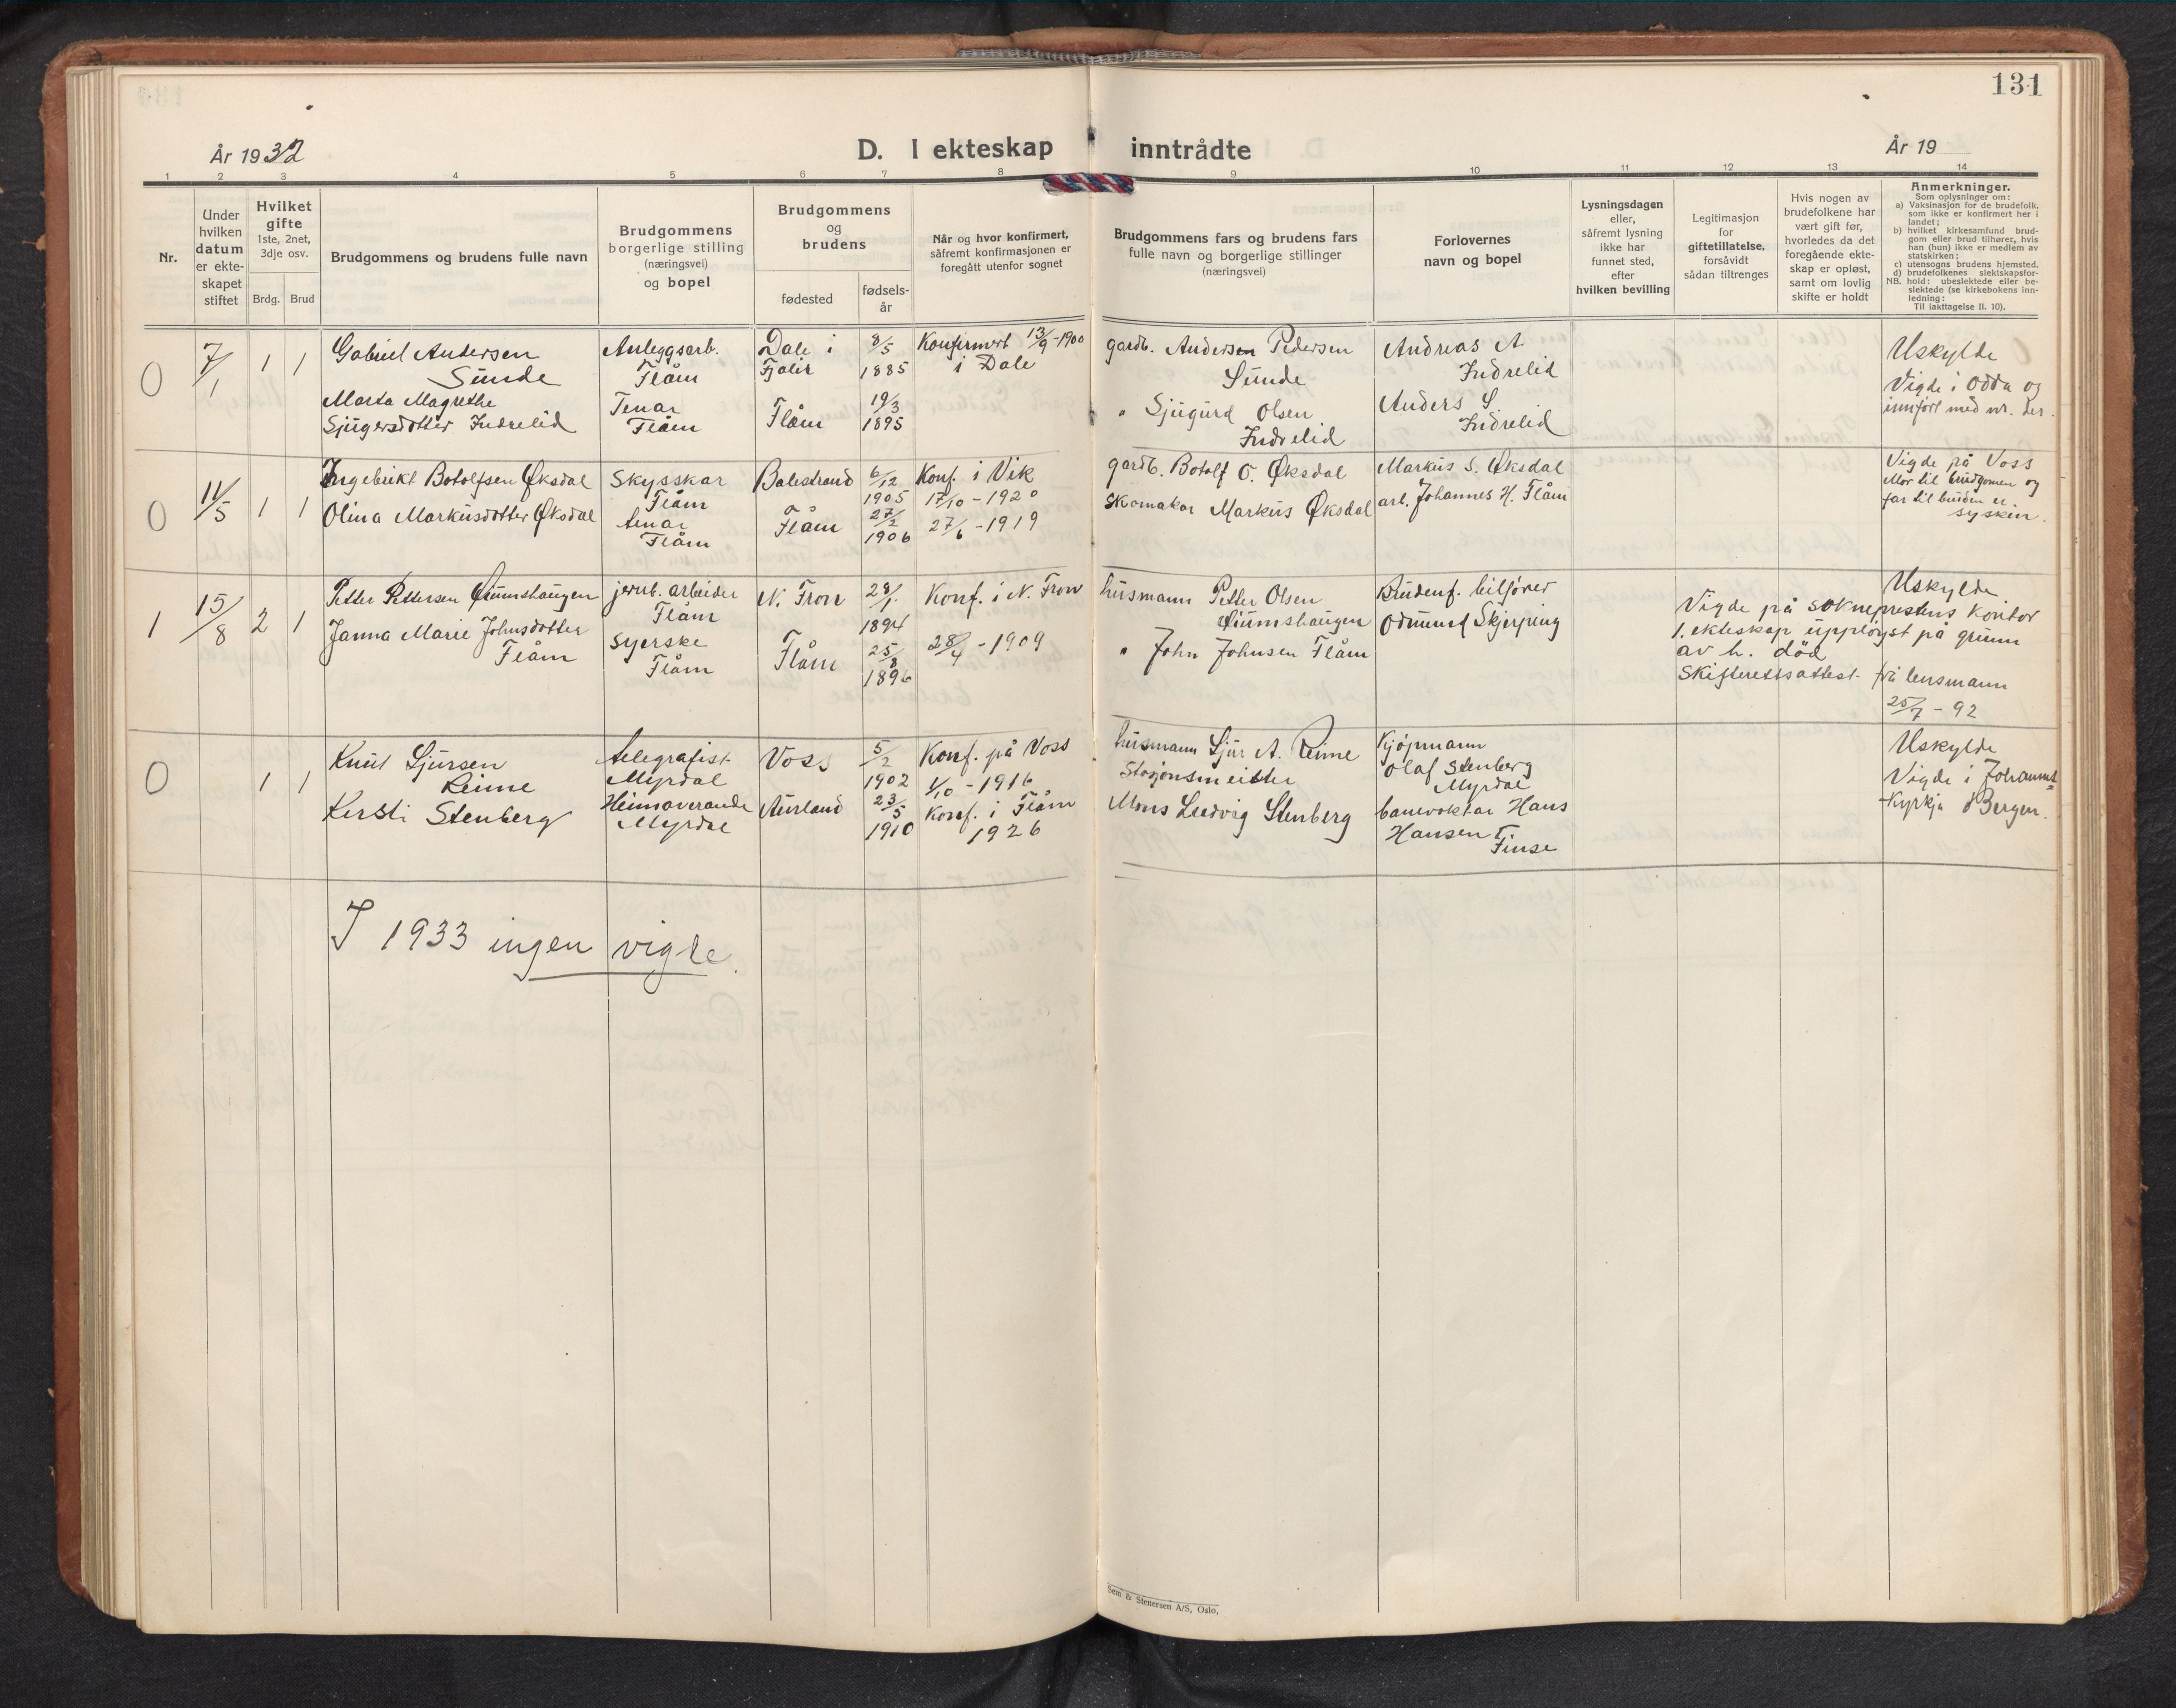 131
År 1932
D. I ekteskap inntrådte
År 19
1 2 3 4 5 6 7 8 9 10 11 12 13 14
Nr.
Under
hvilken
datum
er ekte-
skapet
stiftet
Hvilket
gifte
1ste, 2net,
3dje osv.
Brdg. Brud
Brudgommens og brudens fulle navn
Brudgommens
borgerlige stilling
(næringsvei)
og bopel
Brudgommens
og
brudens
fødested
fødsels-
år
Når og hvor konfirmert,
såfremt konfirmasjonen er
foregått utenfor sognet
Brudgommens fars og brudens fars
fulle navn og borgerlige stillinger
(næringsvei)
Forlovernes
navn og bopel
Lysningsdagen
eller,
såfremt lysning
ikke har
funnet sted,
efter
hvilken bevilling
Legitimasjon
for
giftetillatelse,
forsåvidt
sådan tiltrenges
Hvis nogen av
brudefolkene har
vært gift før,
hvorledes da det
foregående ekte-
skap er opløst,
samt om lovlig
skifte er holdt
Anmerkninger.
Som oplysninger om:
a) Vaksinasjon for de brudefolk,
som ikke er konfirmert her i
landet;
b) hvilket kirkesamfund brud-
gom eller brud tilhører, hvis
han (hun) ikke er medlem av
statskirken;
c) utensogns brudens hjemsted.
d) brudefolkenes slektskapsfor-
hold: ubeslektede eller be-
slektede (se kirkebokens inn-
ledning:
NB. Til iakttagelse II. 10).
0
7/1
1 1
Gabriel Andersen
Sunde
Marta Magrethe
Sjugersdotter Indrelid
Anleggsarb.
Flåm
Tenar
Flåm
Dale i
Fjaler
Flåm
8/5
1885
19/3
1895
Konfirmert 13/9-1900
i Dale
gardb. Andersen Pedersen
Sunde
" Sjugurd Olsen
Indrelid
Andreas A
Indrelid
Anders S
Indrelid
Uskylde
Vigde i Odda og
innført med nr. der.
0
11/5
1 1
Ingebrikt Botolfsen Øksdal
Olina Markusdotter Øksdal
Skysskar
Flåm
tenar
Flåm
Balestrand
Flåm
6/12
1905
27/2
1906
Konf. i Vik
17/10-1920
27/6-1919
gardb. Botolf O. Øksdal
Skomakar Markus Øksdal
Markus S. Øksdal
arb. Johannes H. Flåm
Vigde på Voss
Mor til brudgomen og
far til bruden er
syskin.
1
15/8
2 1
Petter Pettersen
Janna Marie Johnsdotter
Flåm
jernb. arbeider
Flåm
Syerske
Flåm
N. Fron
Flåm
28/1
1894
25/8
1896
Konf. i N. Fron
28/4-1909
husmann Petter Olsen
" John Johnsen Flåm
Brudenf. bilfører
Odmund Skjerping
Uskylde
Vigde på sokneprestens kontor
1. ekteskap uppløyst på grunn
av h. død
Skifterettsattest frå lensmann
25/7-92
0
1 1
Knut Sjursen
Reime
Kersti Stenberg
telegrafist
Myrdal
Heimaverande
Myrdal
Voss
Aurland
5/2
1902
23/5
1910
Konf. på Voss
1/10-1916
Konf. i Flåm
1926
husmann Sjur A. Reime
Stasjonsmeister
Mons Ludvig Stenberg
Kjøpmann
Olaf Stenberg
Myrdal
banevoktar Hans
Hansen
Finse
Uskylde
Vigde i Johannes
-Kyrkja i Bergen.
I 1933 ingen vigde.
Sem & Stenersen A/S, Oslo.